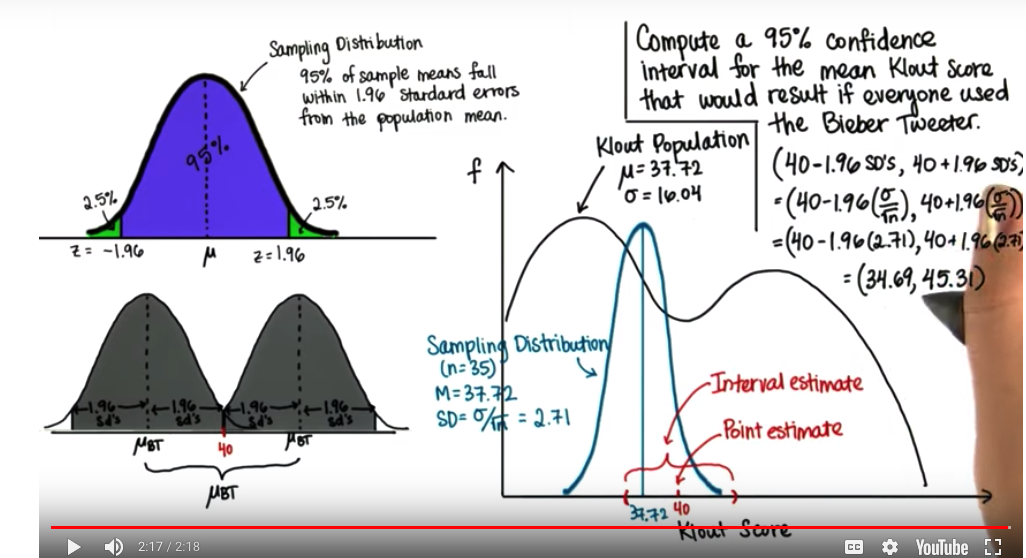 Sampling Distribution
95% of sample means fall
within 1.96 standard errors
from the population mean.
95%
2.5%
2.5%
z = -1.96
μ
z = 1.96
←1.96→
sd's
←1.96
sd's
←1.96→
sd's
←1.96
sd's
μBT
40
μBT
μBT
Compute a 95% confidence
interval for the mean Klout score
that would result if everyone used
the Bieber Tweeter.
(40-1.96 SD's, 40+1.96 SD's)
=(40-1.96(σ/√n), 40+1.96(σ/√n))
=(40-1.96(2.71), 40+1.96(2.71
=(34.69, 45.31)
Klout Population
μ=37.72
σ=16.04
f
Sampling Distribution
(n=35)
M=37.72
SD=σ/√n = 2.71
Interval estimate
Point estimate
37.72
40
Klout Score
2:17 / 2:18
CC
YouTube